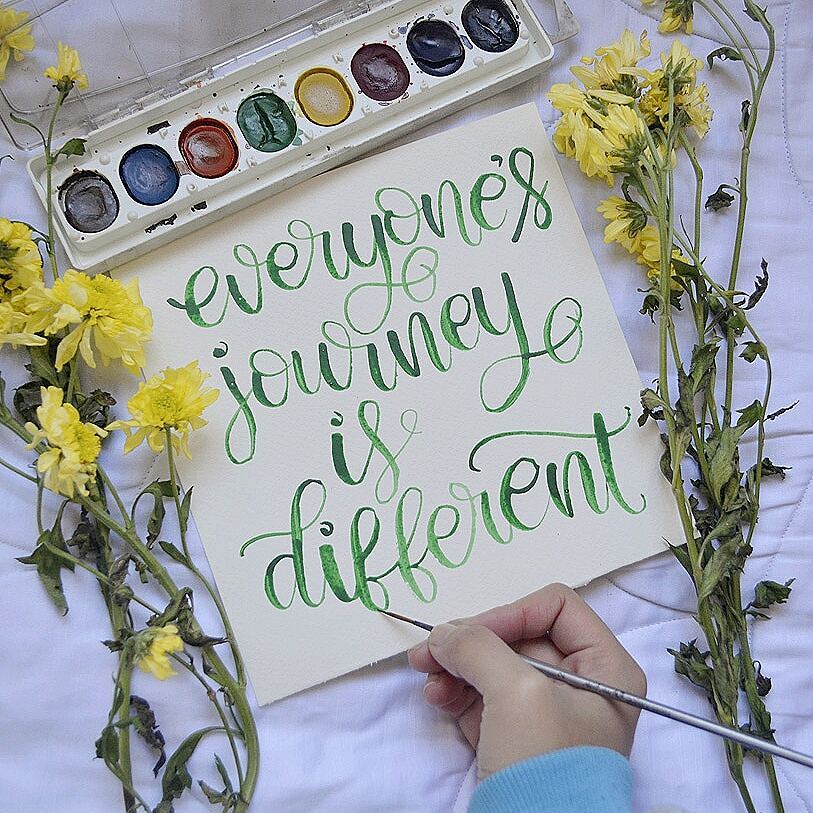 everyone's
journey
is
different